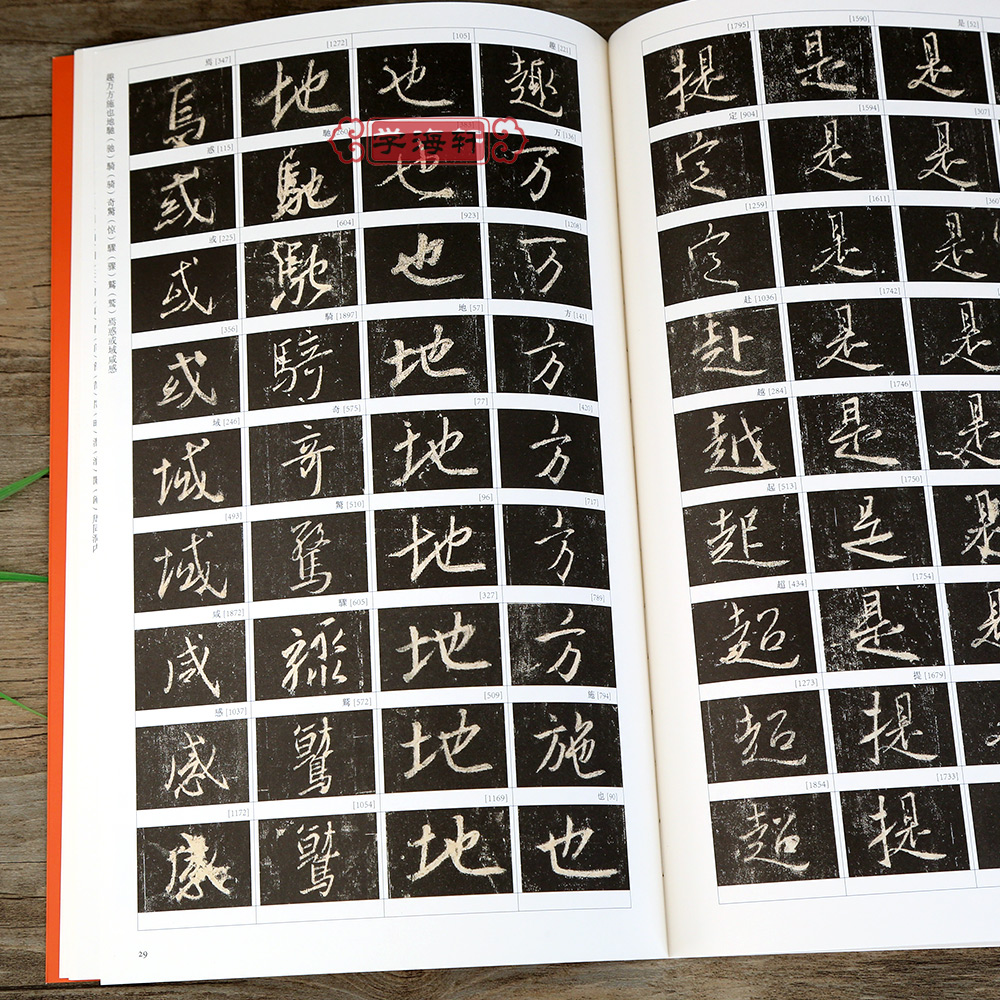 趣万方施也地馳（驰）騎（骑）奇驚（惊）驟（骤）鷲（鹫）焉惑或域咸感
趣 [221]
趣
万 [136]
万
[1208]
万
方 [141]
方
[420]
方
[717]
方
[789]
方
施 [794]
施
也 [90]
也
[105]
也
也
[923]
也
地 [57]
地
[77]
地
[96]
地
[327]
地
[509]
地
[1169]
地
[1272]
地
馳
馳
[604]
馳
騎 [1897]
騎
奇 [575]
奇
驚 [510]
驚
驟 [605]
驟
鷲 [572]
鷲
[1054]
鷲
焉 [347]
焉
惑 [115]
惑
或 [225]
或
[356]
或
域 [246]
域
[493]
域
咸 [1872]
咸
感 [1037]
感
[1172]
感
29
学海轩
是 [52]
是
[307]
是
是
是
是
是
是
[1590]
是
[1594]
是
[1611]
是
[1742]
是
[1746]
是
[1750]
是
[1754]
是
提 [1679]
提
[1733]
提
[1795]
提
定 [904]
定
[1259]
定
赴 [1036]
赴
越 [284]
越
起 [513]
起
超 [434]
超
[1273]
超
[1854]
超